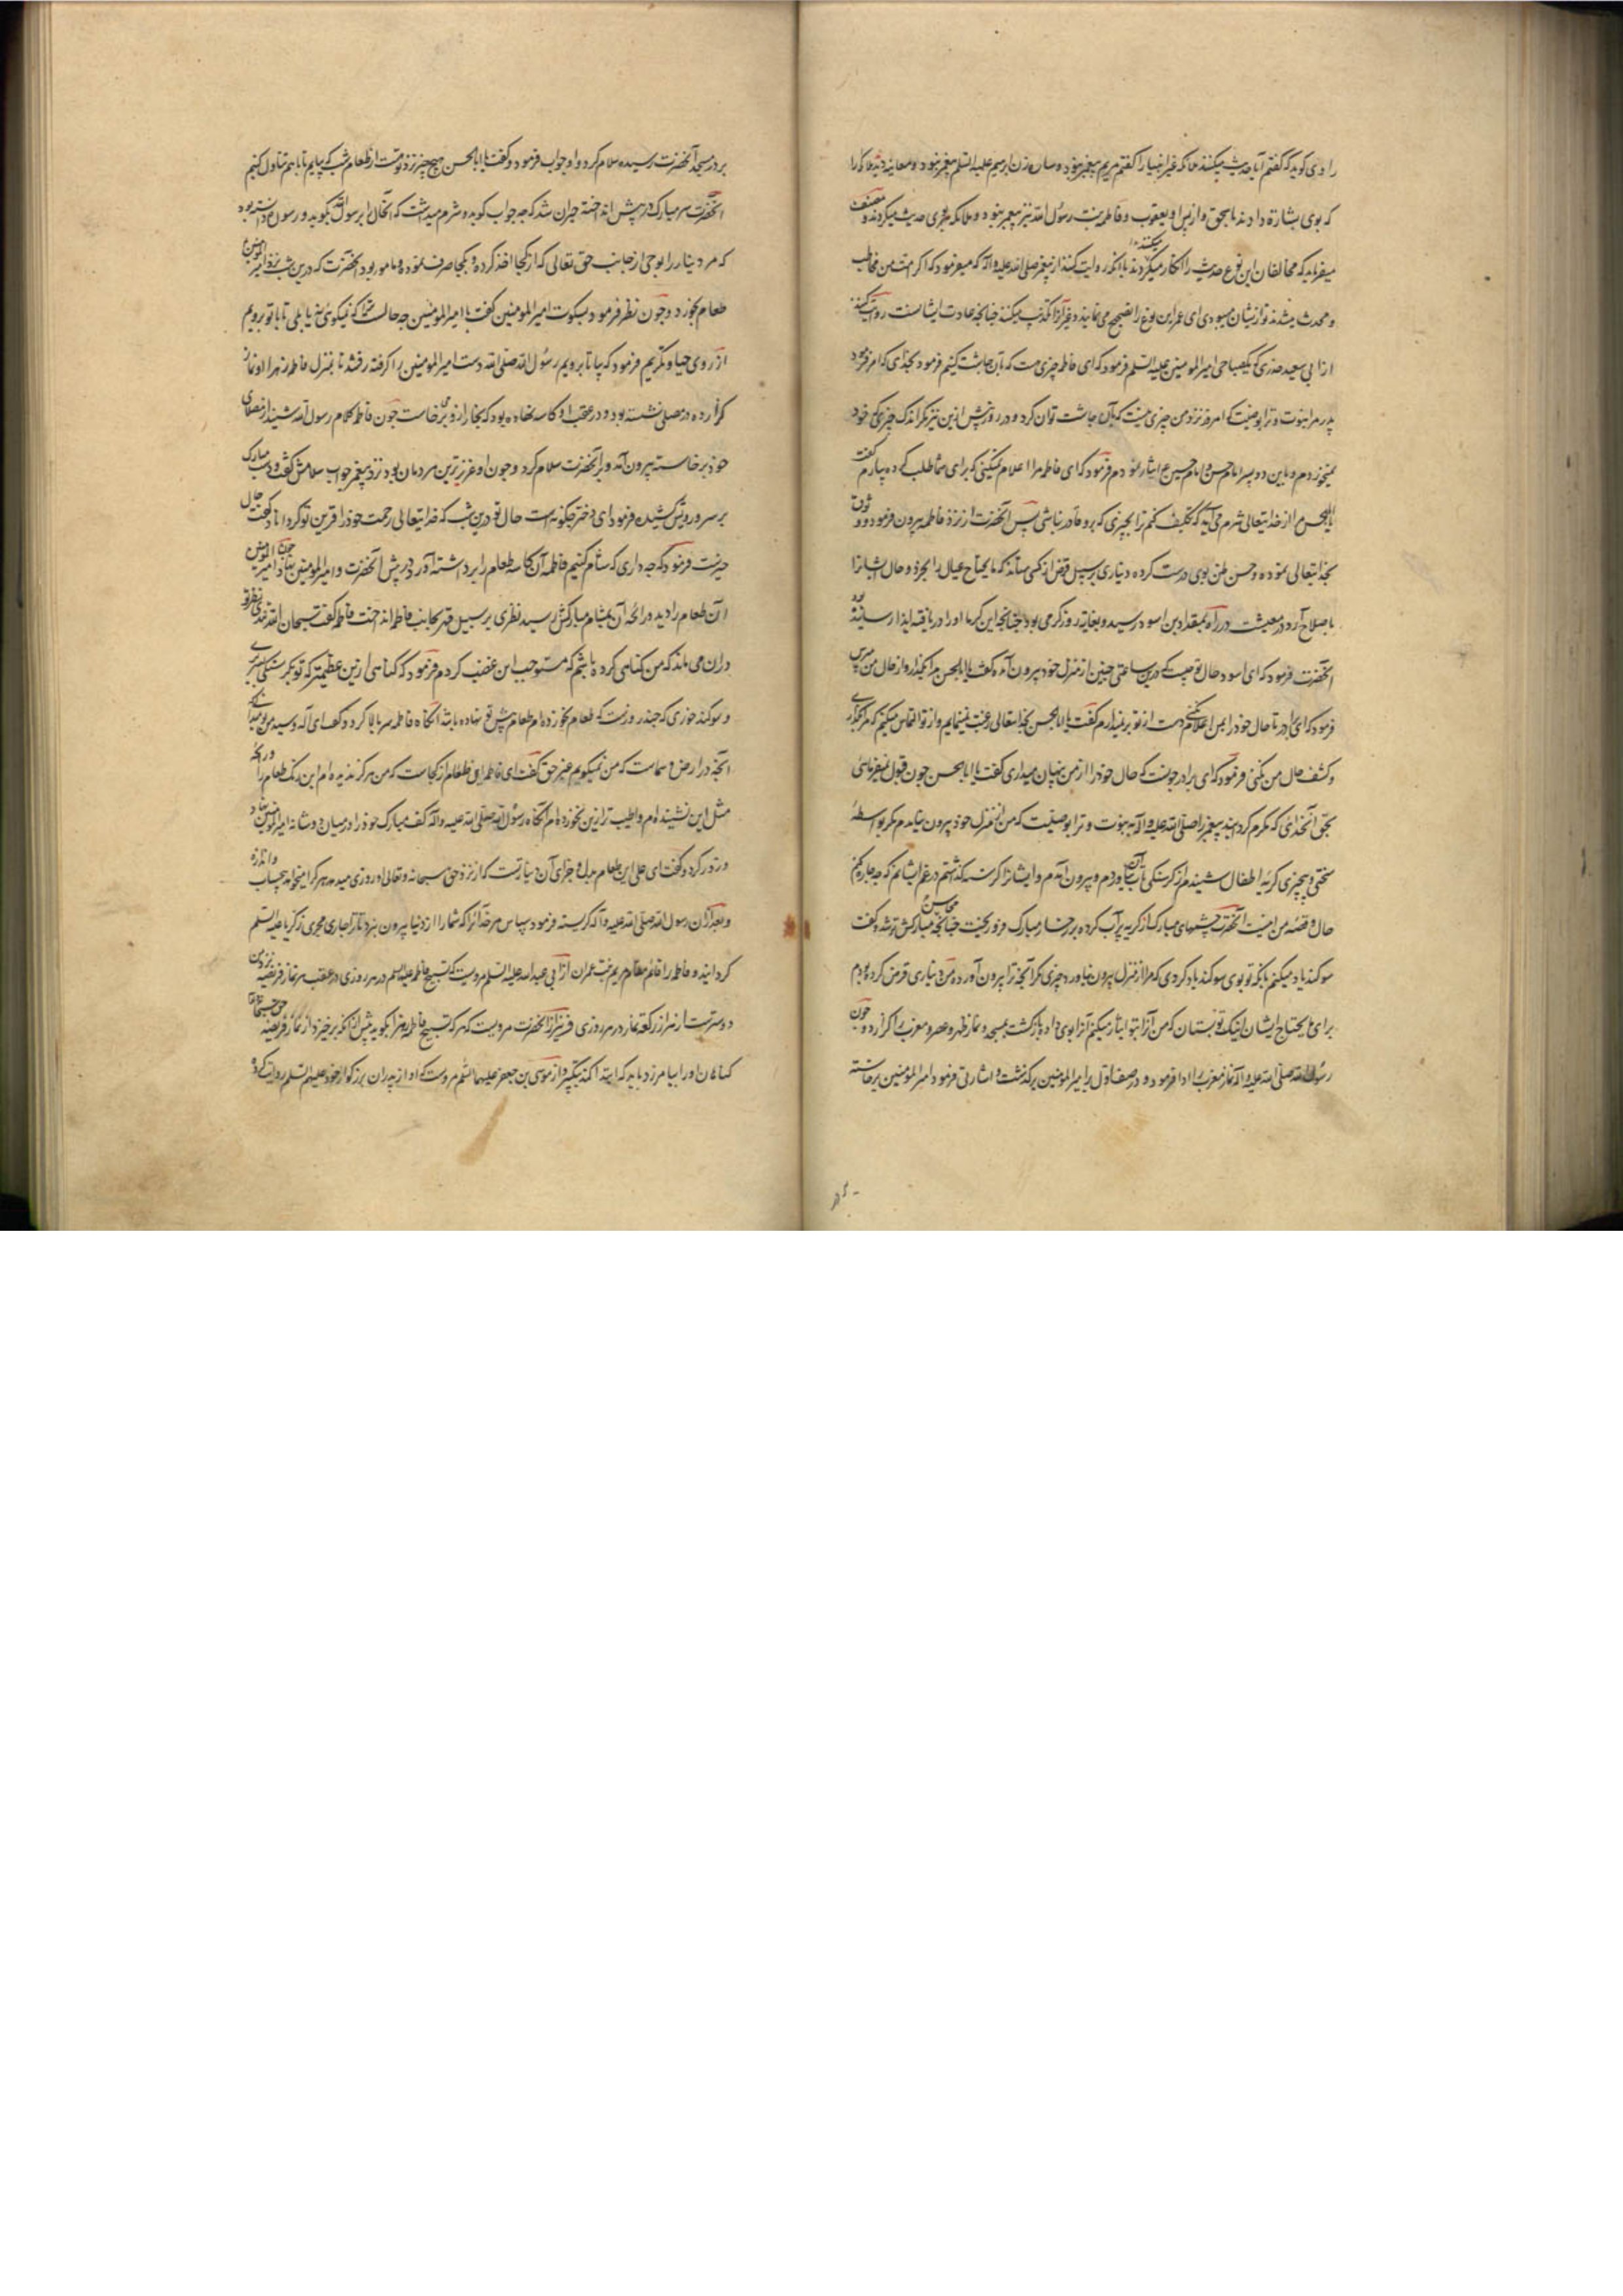 راوی کوید که گفتم آیا حدیث میکنند ملائکه غیر انبیا را گفت مریم پیغمبر نبود و ساره زن ابرهیم علیه السلم پیغمبر نبود و معاینه دید ملائکه را
که بوی بشارة دادند باسحق و از پس او یعقوب و فاطمه بنت رسول الله نیز پیغمبر نبود و ملائکه با وی حدیث میکردند و مصنف
میفرماید که مخالفان این نوع حدیث را انکار میکنند با آنکه روایت کنند از پیغمبر صلی الله علیه و آله که میفرمود که اگر امت من مخاطب
و محدث میشدند تو از ایشان میبودی ای عمر این نوع را تصحیح می نمایند و غیر آنرا تکذیب میکنند چنانچه عادت ایشانست روایت کنند
از ابی سعید خدری که یکصباحی امیر المومنین علیه السلم فرمود که ای فاطمه چیزی هست که بآن چاشت کنیم فرمود بخدای که اکرام فرمود
پدر مرا بنبوت و ترا بوصیت که امروز نزد من چیزی نیست که بآن چاشت توان کرد و در روز پیش ازین نیز مکر اندک چیزی که خود
نمیخوردم و باین دو پسر امام حسن و امام حسین ع ایثار نمودم فرمود که ای فاطمه مرا اعلام نمیکنی که برای شما طلب کرده بیارم گفت
یا ابا الحسن من از خدایتعالی شرم می آید که تکلیف کنم ترا بچیزی که برو قادر نباشی پس آنحضرت از نزد فاطمه بیرون فرمود و وثوق
بخدایتعالی نموده و حسن ظن بوی درست کرده دیناری بر سبیل قرض از کسی بستاند که ما یحتاج عیال را بخرد و حال ایشانرا
باصلاح آرد در معیشت در راه بمقداد بن اسود رسید و بغایة روز گرمی بود چنانچه این گرما او را دریافته ایذا رسانیده بود
آنحضرت فرمود که ای اسود حال تو چیست که درین ساعتی چنین از منزل خود بیرون آمده گفت یا ابا الحسن مرا بگذار و از حال من مپرس
فرمود که ای برادر تا حال خود را بمن اعلام نمیکنی دست از تو بر نمیدارم گفت یا ابا الحسن بخدایتعالی رغبت مینمایم و از تو التماس میکنم که مرا بگذاری
و کشف حال من نکنی فرمود که ای برادر چونست که حال خود را از من پنهان میداری گفت یا ابا الحسن چون قبول نمیفرمائی
بحق آنخدای که مکرم گردانید پیغمبر را صلی الله علیه و آله به نبوت و ترا بوصیت که من از منزل خود بیرون نیامدم مکر بواسطهٔ
سختی و بیچیزی گریهٔ اطفال شنیدم از گرسنگی تاب آن نیاوردم و بیرون آمدم و ایشانرا گرسنه گذاشتم در غم ایشانم که چه چاره کنم
حال و قصهٔ من اینست آنحضرت چشمهای مبارک از گریه پر آب کرده بر رخسار مبارک فرو ریخت چنانچه محاسن مبارکش تر شد و گفت
سوگند یاد میکنم بآنکه تو بوی سوگند یاد کردی که مرا از منزل بیرون نیاورد چیزی مکر آنچه ترا بیرون آورده من دیناری قرض کرده بودم
برای ما یحتاج ایشان اینک تو بستان که من آنرا بتو ایثار میکنم آنرا بوی داد و بازگشت بمسجد و نماز ظهر و عصر و مغرب را گزارد و چون
رسول الله صلی الله علیه و آله نماز مغرب را ادا فرمود و در صف اول بر امیر المومنین برگذشت و اشارتی فرمود امیر المومنین برخاسته
بر در مسجد آنحضرت رسیده سلام کرد و او جواب فرمود و گفت یا ابا الحسن هیچ چیز نزد تو هست از طعام شب که بیایم تا با هم تناول کنیم
آنحضرت سر مبارک در پیش انداخته حیران شد که چه جواب گوید و شرم میداشت که آنحال را برسول الله بگوید و رسول دانسته بود
که مر دینار را بوحی از جانب حق تعالی که از کجا اخذ کرده و بکجا صرف نموده و مامور بود آنحضرت که درین شب نزد امیر المومنین
طعام بخورد و چون نظر فرمود بسکوت امیر المومنین گفت یا امیر المومنین چه حالست ترا که نمیگوئی نه یا بلی تا با تو برویم
از روی حیا و تکریم فرمود که بیا تا برویم رسول الله صلی الله دست امیر المومنین را گرفته رفتند تا بمنزل فاطمه زهرا او نماز
گزارده در مصلی نشسته بود و در عقب او کاسه نهاده بود که بخار ازو بر میخاست چون فاطمه کلام رسول الله شنید از مصلای
خود برخاسته بیرون آمد و بر آنحضرت سلام کرد و چون او عزیز ترین مردمان بود نزد پیغمبر جواب سلامش گفت و دست مبارک
بر سر و رویش کشیده فرمود ای دختر چگونه است حال تو درین شب که خدایتعالی رحمت خود را قرین تو گرداناد گفت حال
خیرست فرمود که چه داری که شام کنیم فاطمه آن کاسه طعام را برداشته آورد در پیش آنحضرت و امیر المومنین بنهاد چون امیر المومنین
آن طعام را دید و رائحه آن بمشام مبارکش رسید نظری بر سبیل قهر بجانب فاطمه انداخت فاطمه گفت سبحان الله تندی نظر تو
دران می ماند که من گناهی کرده باشم که مستوجب این غضب گردم فرمود که گناهی ازین عظیمتر که تو
و سوگند خوری که چند روزست که طعام نخورده ام طعام پیش تو نهاده باشد آنگاه فاطمه سر ببالا کرد و گفت ای اله و سید من تو میدانی که
آنچه در ارض و سماست که من نمیگویم غیر حق گفت ای فاطمه این طعام از کجاست که من هرگز ندیده ام این رنگ طعام را و رائحه
مثل این نشنیده ام و اطیب تر ازین نخورده ام آنگاه رسول الله صلی الله علیه و آله کف مبارک خود را در میان دو شانه امیر المومنین نهاد
و گفت ای علی این طعام بدل و جزای آن دینارست که از نزد حق سبحانه و تعالی او روزی میدهد هر کرا میخواهد بیحساب و اندازه
و بعد ازان رسول الله صلی الله علیه و آله گریسته فرمود سپاس مر خدائرا که شما را از دنیا بیرون نبرد تا ترا جاری مجری زکریا علیه السلم
گردانید و فاطمه را قائم مقام مریم بنت عمران از ابی عبد الله علیه السلم مرویست که تسبیح فاطمه علیها السلم در هر روزی در عقب هر نماز فریضه نزد من
دوسترست از هزار رکعة نماز در هر روزی و نیز از آنحضرت مرویست که هر که تسبیح فاطمه زهرا بگوید پیش از آنکه برخیزد از نماز فریضه حق سبحانه تعالی
گناهان او را بیامرزد باید که ابتدا کند بتکبیر و از موسی بن جعفر علیهما السلم مرویست که او از پدران بزرگوار خود علیهم السلم روایت کرده